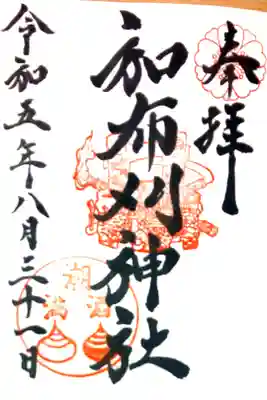 奉拝
加布刈神社
令和五年八月三十一日
潮
満
涸